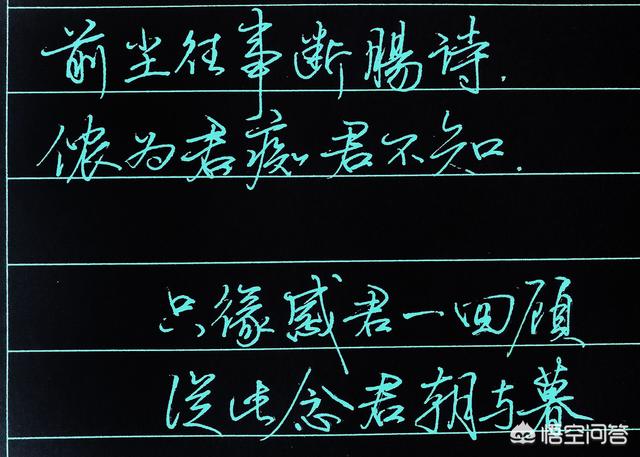 前尘往事断腸诗.
侬为君痴君不知.
只缘感君一回顾
从此念君朝与暮
悟空问答